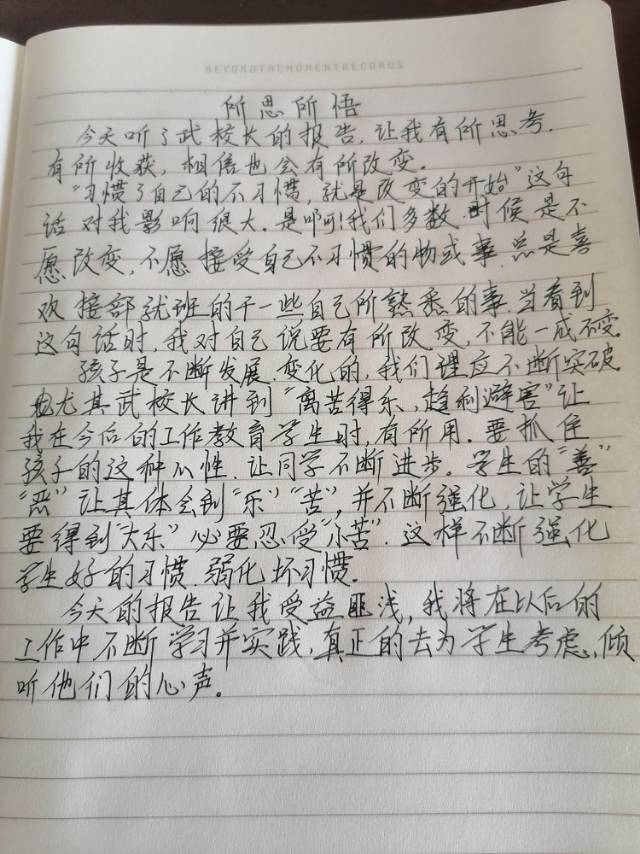 BEYONDTHEMOMENTRECORDS
所思所悟
今天听了武校长的报告,让我有所思考.
有所收获,相信也会有所改变。
“习惯了自己的不习惯,就是改变的开始”这句
话对我影响很大.是啊!我们多数时候是不
愿改变,不愿接受自己不习惯的物或事.总是喜
欢接部就班的干一些自己所熟悉的事.当看到
这句话时,我对自己说要有所改变,不能一成不变.
孩子是不断发展.变化的,我们理应不断突破.
尤其武校长讲到“离苦得乐,趋利避害”让
我在今后的工作教育学生时,有所用.要抓住
孩子的这种心性.让同学不断进步。学生的“善”
“恶”让其体会到“乐”“苦”,并不断强化,让学生
要得到“大乐”必要忍受“小苦”.这样不断强化
学生好的习惯.弱化坏习惯.
今天的报告让我受益匪浅,我将在以后的
工作中不断学习并实践,真正的去为学生考虑,倾
听他们的心声。